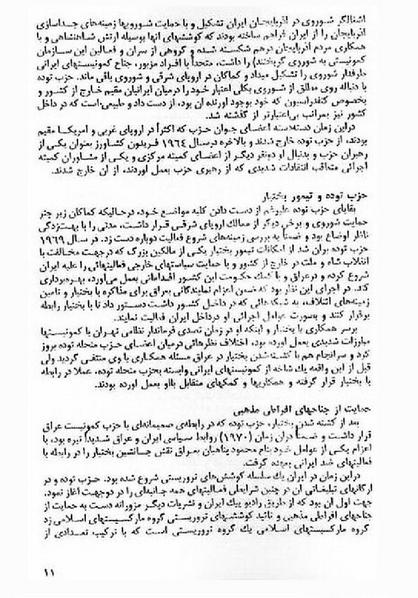 اشغالگر شوروی در آذربایجان ایران تشکیل و با حمایت شورویها زمینه‌های جداسازی
آذربایجان را از ایران فراهم ساخته بودند که کوششهای آنها بوسیله ارتش شاهنشاهی و با
همکاری مردم آذربایجان درهم شکسته شده و گروهی از سران و فعالین این سازمان
کمونیستی به شوروی گریختند) را داشت، متحداً با افراد مزبور، جناح کمونیستهای ایرانی
طرفدار شوروی را تشکیل میداد و کماکان در اروپای شرقی و شوروی باقی ماند. حزب توده
با دنباله روی مطلق از شوروی بکلی اعتبار خود را درمیان ایرانیان مقیم خارج از کشور و
بخصوص کنفدراسیون که خود بوجود آورنده آن بود، از دست داد و طبیعی است که در داخل
کشور نیز بمراتب بی‌اعتبارتر از گذشته شد.
دراین زمان دسته‌دسته اعضای جوان حزب که اکثراً در اروپای غربی و امریکا مقیم
بودند، از حزب توده خارج شدند و بالاخره درسال ۱۹۶۴ فریدون کشاورز بعنوان یکی از
رهبران حزب و بدنبال او دونفر دیگر از اعضای کمیته مرکزی و یکی از مشاوران کمیته
اجرائی متعاقب انتقادات شدیدی که از رهبری حزب بعمل آوردند، از آن خارج شدند.
حزب توده و تیمور بختیار
بقایای حزب توده علیرغم از دست دادن کلیه مواضع خود، درحالیکه کماکان زیر چتر
حمایت شوروی و برخی دیگر از ممالک اروپای شرقی قرار داشت، مدتی را با بهت‌زدگی
ناظر اوضاع بود و ضمناً به بررسی زمینه‌های شروع فعالیت دوباره دست زد. در سال ۱۹۶۹
حزب توده برآن شد از امکانات تیمور بختیار یکی از مالکین بزرگ که درجهت مخالفت با
انقلاب شاه و ملت در خارج از کشور و با حمایت سیاستهای خارجی فعالیتهائی را علیه ایران
شروع کرده و درعراق و با کمک حکومت این کشور اقداماتی بعمل می‌آورد، بهره‌برداری
کند. در اجرای این نظر بود که ضمن اعزام نمایندگانی بعراق برای مذاکره با بختیار و تامین
زمینه‌های ائتلاف، به شبکه‌هائی که در داخل کشور داشت دستور داد تا با بختیار رابطه
برقرار کنند و بصورت عوامل اجرائی او درداخل ایران فعالیت نمایند.
برسر همکاری با بختیار و اینکه او در زمان تصدی فرماندار نظامی تهران با کمونیستها
مبارزات شدیدی بعمل آورده بود، اختلاف نظرهائی درمیان اعضای حزب منحله توده بروز
کرد و سرانجام هم با کشته شدن بختیار در عراق مسئله همکاری با وی منتفی گردید ولی
قبل از این واقعه یک شاخه از کمونیستهای ایرانی وابسته بحزب منحله توده، عملا در رابطه
با بختیار قرار گرفته و همکاریها و کمکهای متقابل باو بعمل آورده بودند.
حمایت از جناحهای افراطی مذهبی
بعد از کشته شدن بختیار، حزب توده که در رابطه‌ی صمیمانه‌ای با حزب کمونیست عراق
قرار داشت و ضمناً درآن زمان (۱۹۷۰) روابط سیاسی ایران و عراق شدیداً تیره بود، با
اعزام یکی از عوامل خود بنام محمود پناهیان بعراق نقش جانشین بختیار را در رابطه با
فعالیتهای ضد ایرانی بعهده گرفت.
دراین زمان در ایران یک سلسله کوشش‌های تروریستی شروع شده بود. حزب توده و در
ارگانهای تبلیغاتی آن در چنین شرایطی فعالیتهای همه جانبه‌ای را در دوجهت آغاز نمود،
جهت اول آن بود که از طریق رادیو پیک ایران و نشریات دیگر مزورانه دست به حمایت از
جناحهای افراطی مذهبی و تائید کوششهای تروریستی گروه مارکسیستهای اسلامی زد
گروه مارکسیستهای اسلامی یک گروه تروریستی است که با ترکیب تعدادی از
۱۱